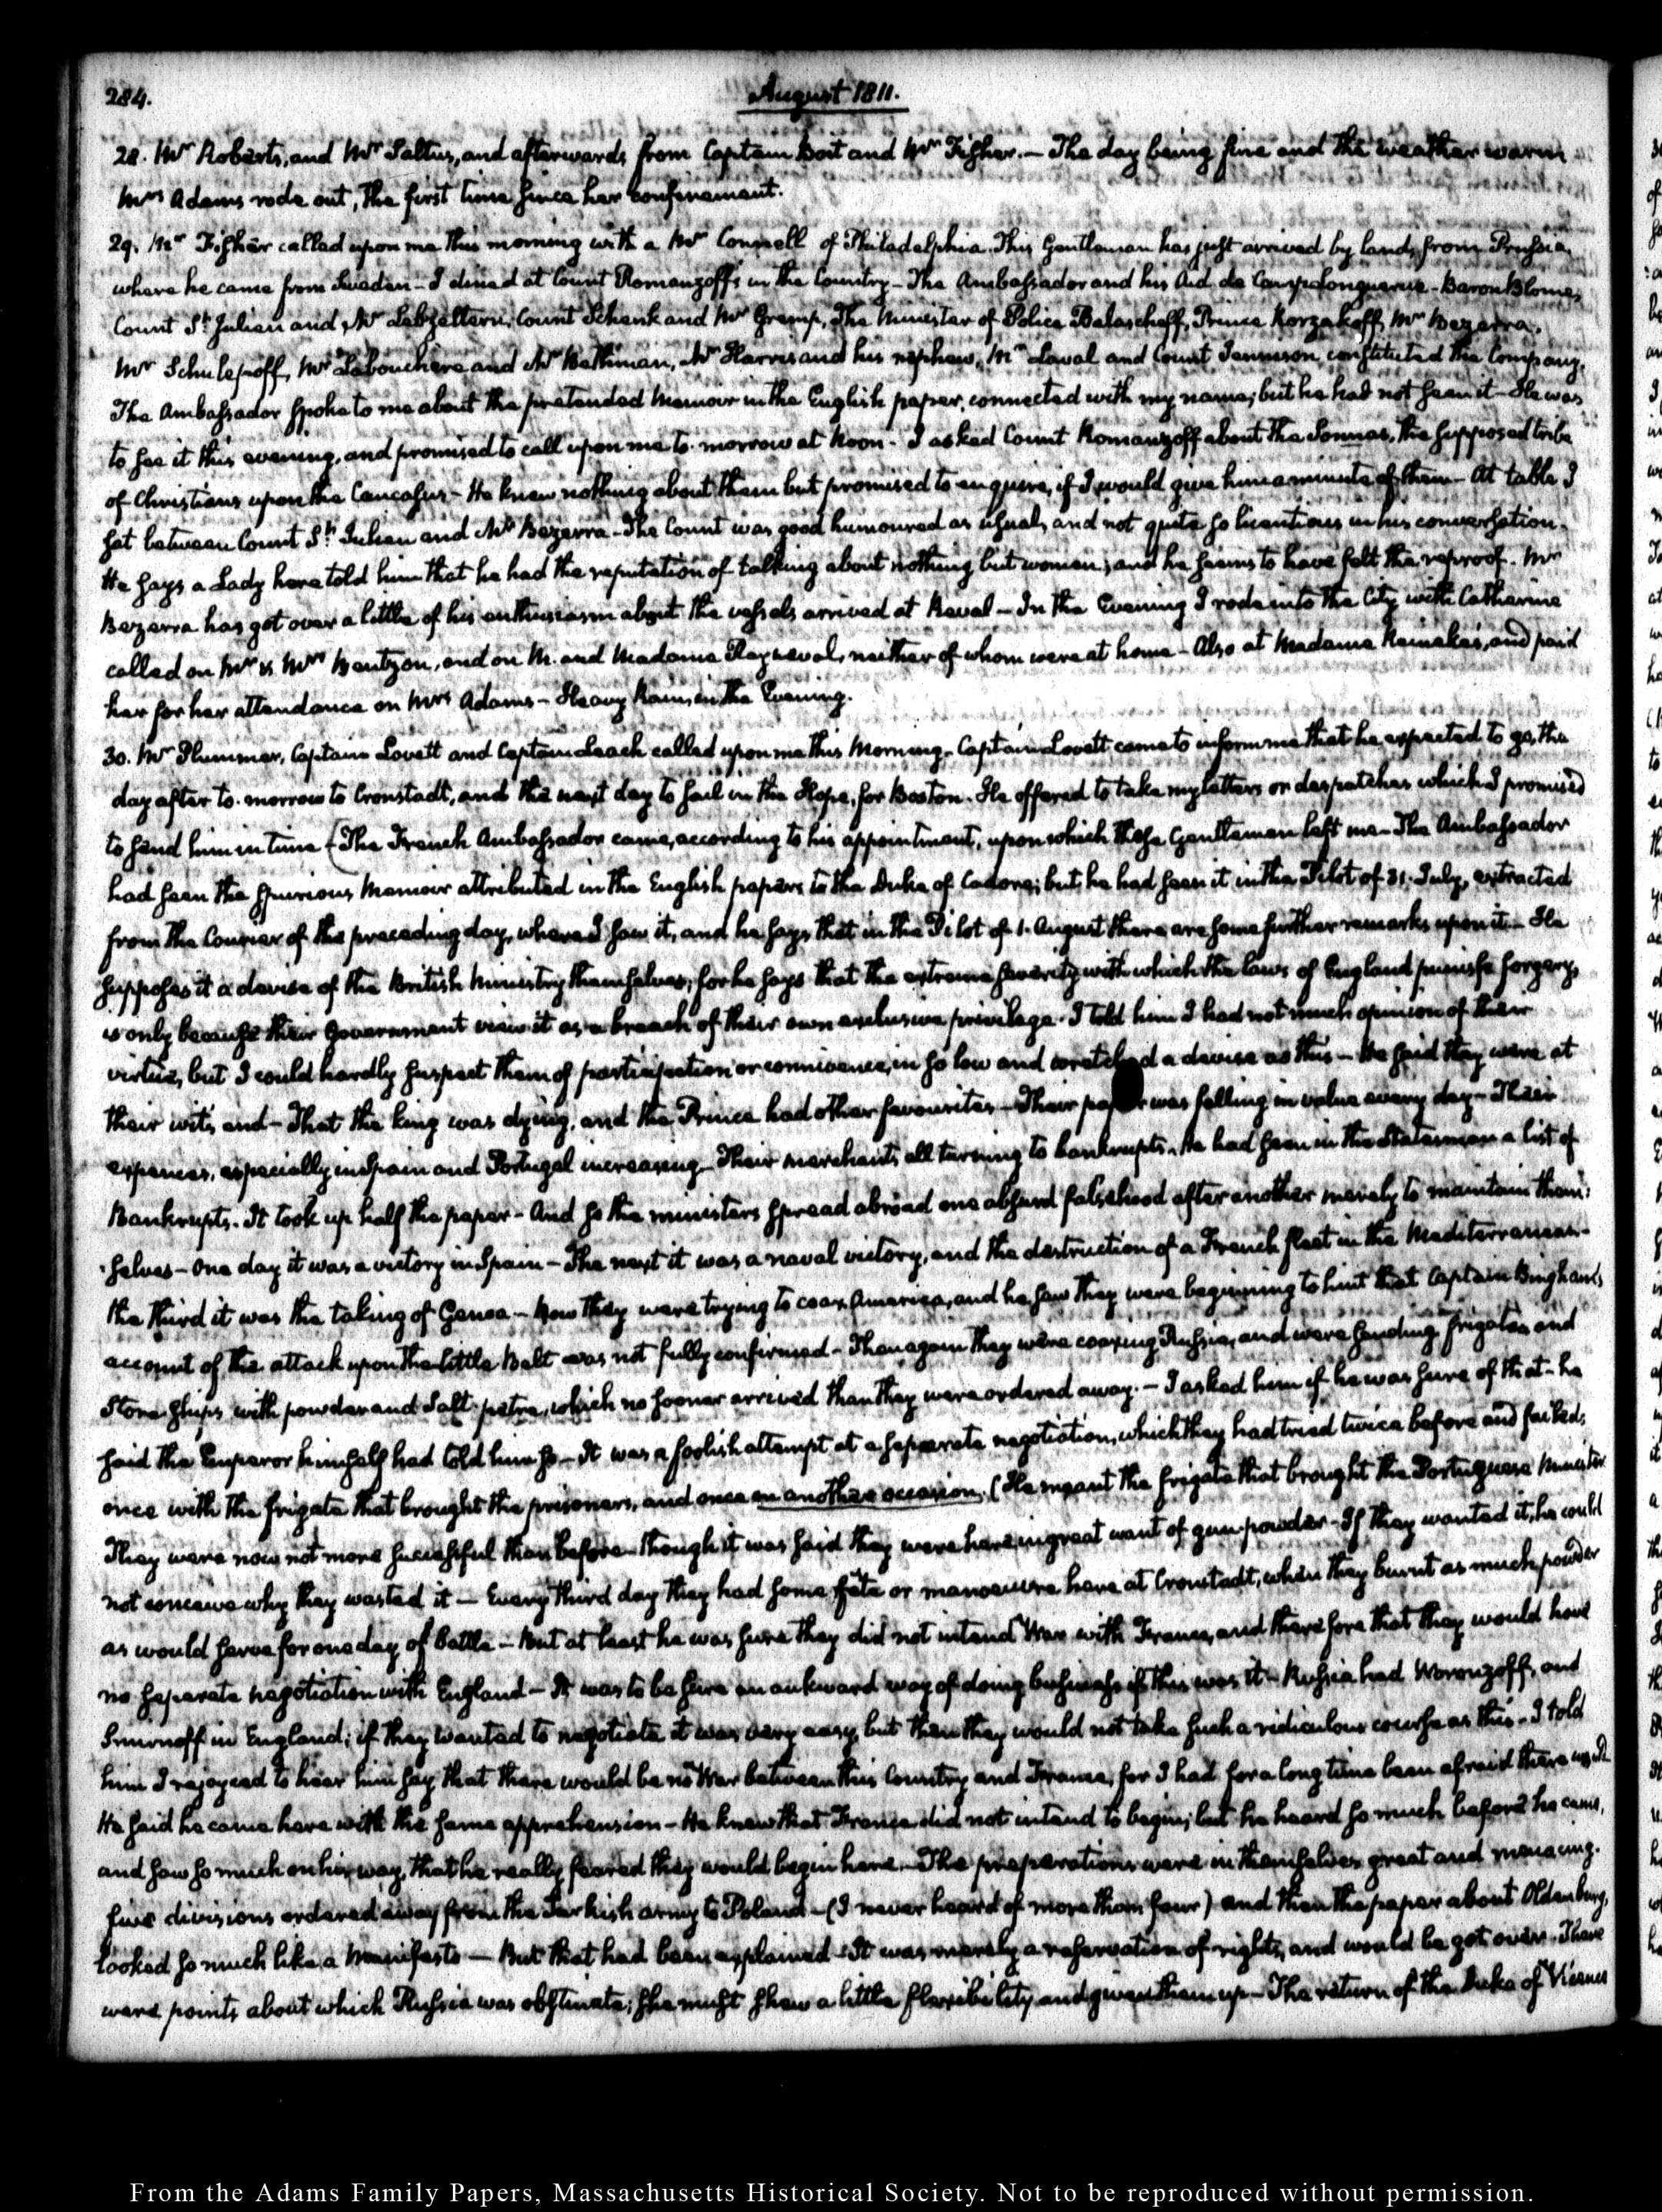 284.
August 1811.
28. Mr Roberts, and Mr Saltus, and afterwards from Captain Boit and Mr Fisher. — The day being fine and the weather warm
Mrs Adams rode out, the first time since her confinement.
29. Mr Fisher called upon me this morning with a Mr Connell of Philadelphia. This Gentleman has just arrived by land, from Prussia,
where he came from Sweden — I dined at Count Romanzoff's in the Country — The Ambassador and his Aid de Camp Longuerue — Baron Blome,
Count St Julien and Mr Lebzeltern, Count Schenk and Mr Gremp, The Minister of Police Balascheff, Prince Korzakoff, Mr Bezerra,
Mr Schulepoff, Mr Labouchere and Mr Bethman, Mr Harris and his nephew, Mr Laval and Count Jennison, constituted the Company.
The Ambassador spoke to me about the pretended Memoir in the English paper, connected with my name; but he had not seen it — He was
to see it this evening, and promised to call upon me to-morrow at Noon — I asked Count Romanzoff about the Sonnas, the supposed tribe
of Christians upon the Caucasus — He knew nothing about them but promised to enquire, if I would give him a minute of them — At table I
sat between Count St Julien and Mr Bezerra — The Count was good humoured as usual, and not quite so licentious in his conversation.
He says a Lady here told him that he had the reputation of talking about nothing but women; and he seems to have felt the reproof. Mr
Bezerra has got over a little of his enthusiasm about the vessels arrived at Reval — In the Evening I rode into the City with Catherine
called on Mr & Mrs Bentzon, and on M. and Madame Rayneval, neither of whom were at home — Also at Madame Heineke's, and paid
her for her attendance on Mrs Adams — Heavy Rains in the Evening.
30. Mr Plummer, Captain Lovett and Captain Leach called upon me this Morning. Captain Lovett came to inform me that he expected to go, the
day after to-morrow to Cronstadt, and the next day to sail in the Hope, for Boston. He offered to take my letters or despatches which I promised
to send him in time (The French Ambassador came, according to his appointment, upon which these Gentlemen left me — The Ambassador
had seen the spurious Memoir attributed in the English papers to the Duke of Cadore; but he had seen it in the Pilot of 31. July, extracted
from the Courier of the preceding day, where I saw it, and he says that in the Pilot of 1. August there are some further remarks upon it — He
supposes it a device of the British Ministry themselves, for he says that the extreme severity with which the laws of England punish forgery,
is only because their Government view it as a breach of their own exclusive privilege. I told him I had not much opinion of their
virtue, but I could hardly suspect them of participation or connivance, in so low and wretched a device as this — He said they were at
their wits end — That the king was dying, and the Prince had other favourites — Their paper was falling in value every day — Their
expences, especially in Spain and Portugal increasing — Their merchants all turning to bankrupts. He had seen in the Statesman a list of
Bankrupts. It took up half the paper — And so the ministers spread abroad one absurd falsehood after another merely to maintain them:
:selves — One day it was a victory in Spain — The next it was a naval victory, and the destruction of a French fleet in the Mediterranean —
the third it was the taking of Genoa — Now they were trying to coax America, and he saw they were beginning to hint that Captain Bingham's
account of the attack upon the Little Belt was not fully confirmed — Then again they were coaxing Russia, and were sending frigates and
Store-ships with powder and Salt-petre, which no sooner arrived than they were ordered away. — I asked him if he was sure of that — he
said the Emperor himself had told him so — It was a foolish attempt at a separate negotiation, which they had tried twice before and failed;
once with the frigate that brought the prisoners, and once on another occasion, (He meant the frigate that brought the Portuguese Minister
They were now not more successful than before — though it was said they were here in great want of gun-powder — If they wanted it, he could
not conceive why they wasted it — Every third day they had some fête or manoeuvre here at Cronstadt, when they burnt as much powder
as would serve for one day of battle — But at least he was sure they did not intend War with France, and therefore that they would have
no separate negotiation with England — It was to be sure an aukward way of doing business if this was it — Russia had Woronzoff, and
Smirnoff in England; if they wanted to negotiate it was very easy, but then they would not take such a ridiculous course as this — I told
him I rejoyced to hear him say that there would be no War between this Country and France, for I had for a long time been afraid there would
He said he came here with the same apprehension — He knew that France did not intend to begin; but he heard so much before he came,
and saw so much on his way, that he really feared they would begin here — The preparations were in themselves great and menacing.
five divisions ordered away from the Turkish army to Poland — (I never heard of more than four) and then the paper about Oldenburg,
looked so much like a Manifesto — But that had been explained — It was merely a reservation of rights, and would be got over. There
were points about which Russia was obstinate; she must shew a little flexibility and give them up — The return of the Duke of Vicenza
From the Adams Family Papers, Massachusetts Historical Society. Not to be reproduced without permission.